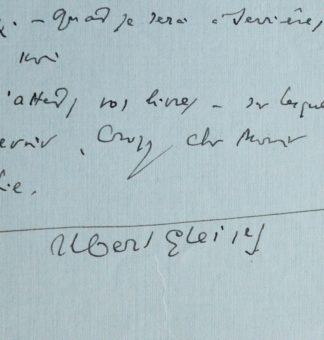 . - Quand je serai à Serrières,
moi
j'attends vos livres - sur lesque
. Croyez, cher Monsieur
Albert Gleizes